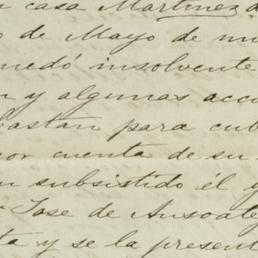 casa Martinez d
o de Mayo de mi
uedó insolvente
n y algunas acc
astan para cub
or cuenta de su
n subsistido él y
Jose de Ansoate
ta y se la present